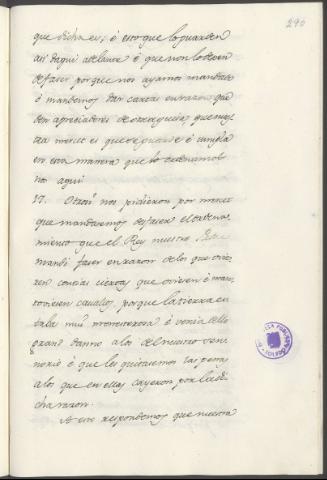 290
que dicho es; é esto que lo guarden
asi daqui adelante é que non lo dexen
de facer por que nos ayamos mandado
é mandemos dar cartas en razon que
den apreciadores de otra guisa que nues
tra mercet es que se guarde é cumpla
en esta manera que lo ordenamos
nos aqui
17. Otrosi nos pidieron por merced
que mandasemos desfacer el ordena
miento que el Rey nuestro Padre
mandó facer en razon de los que ovie
ren contias ciertas que ovieren é man
toviesen cavallos, porque la tierra en
taba muy é venia dello
grand danno a los del nuestro senno
rio é que les quitasemos las penas
a los que en ellas cayeron por la di
cha razon.
A esto respondemos que nuestra
TOLEDO